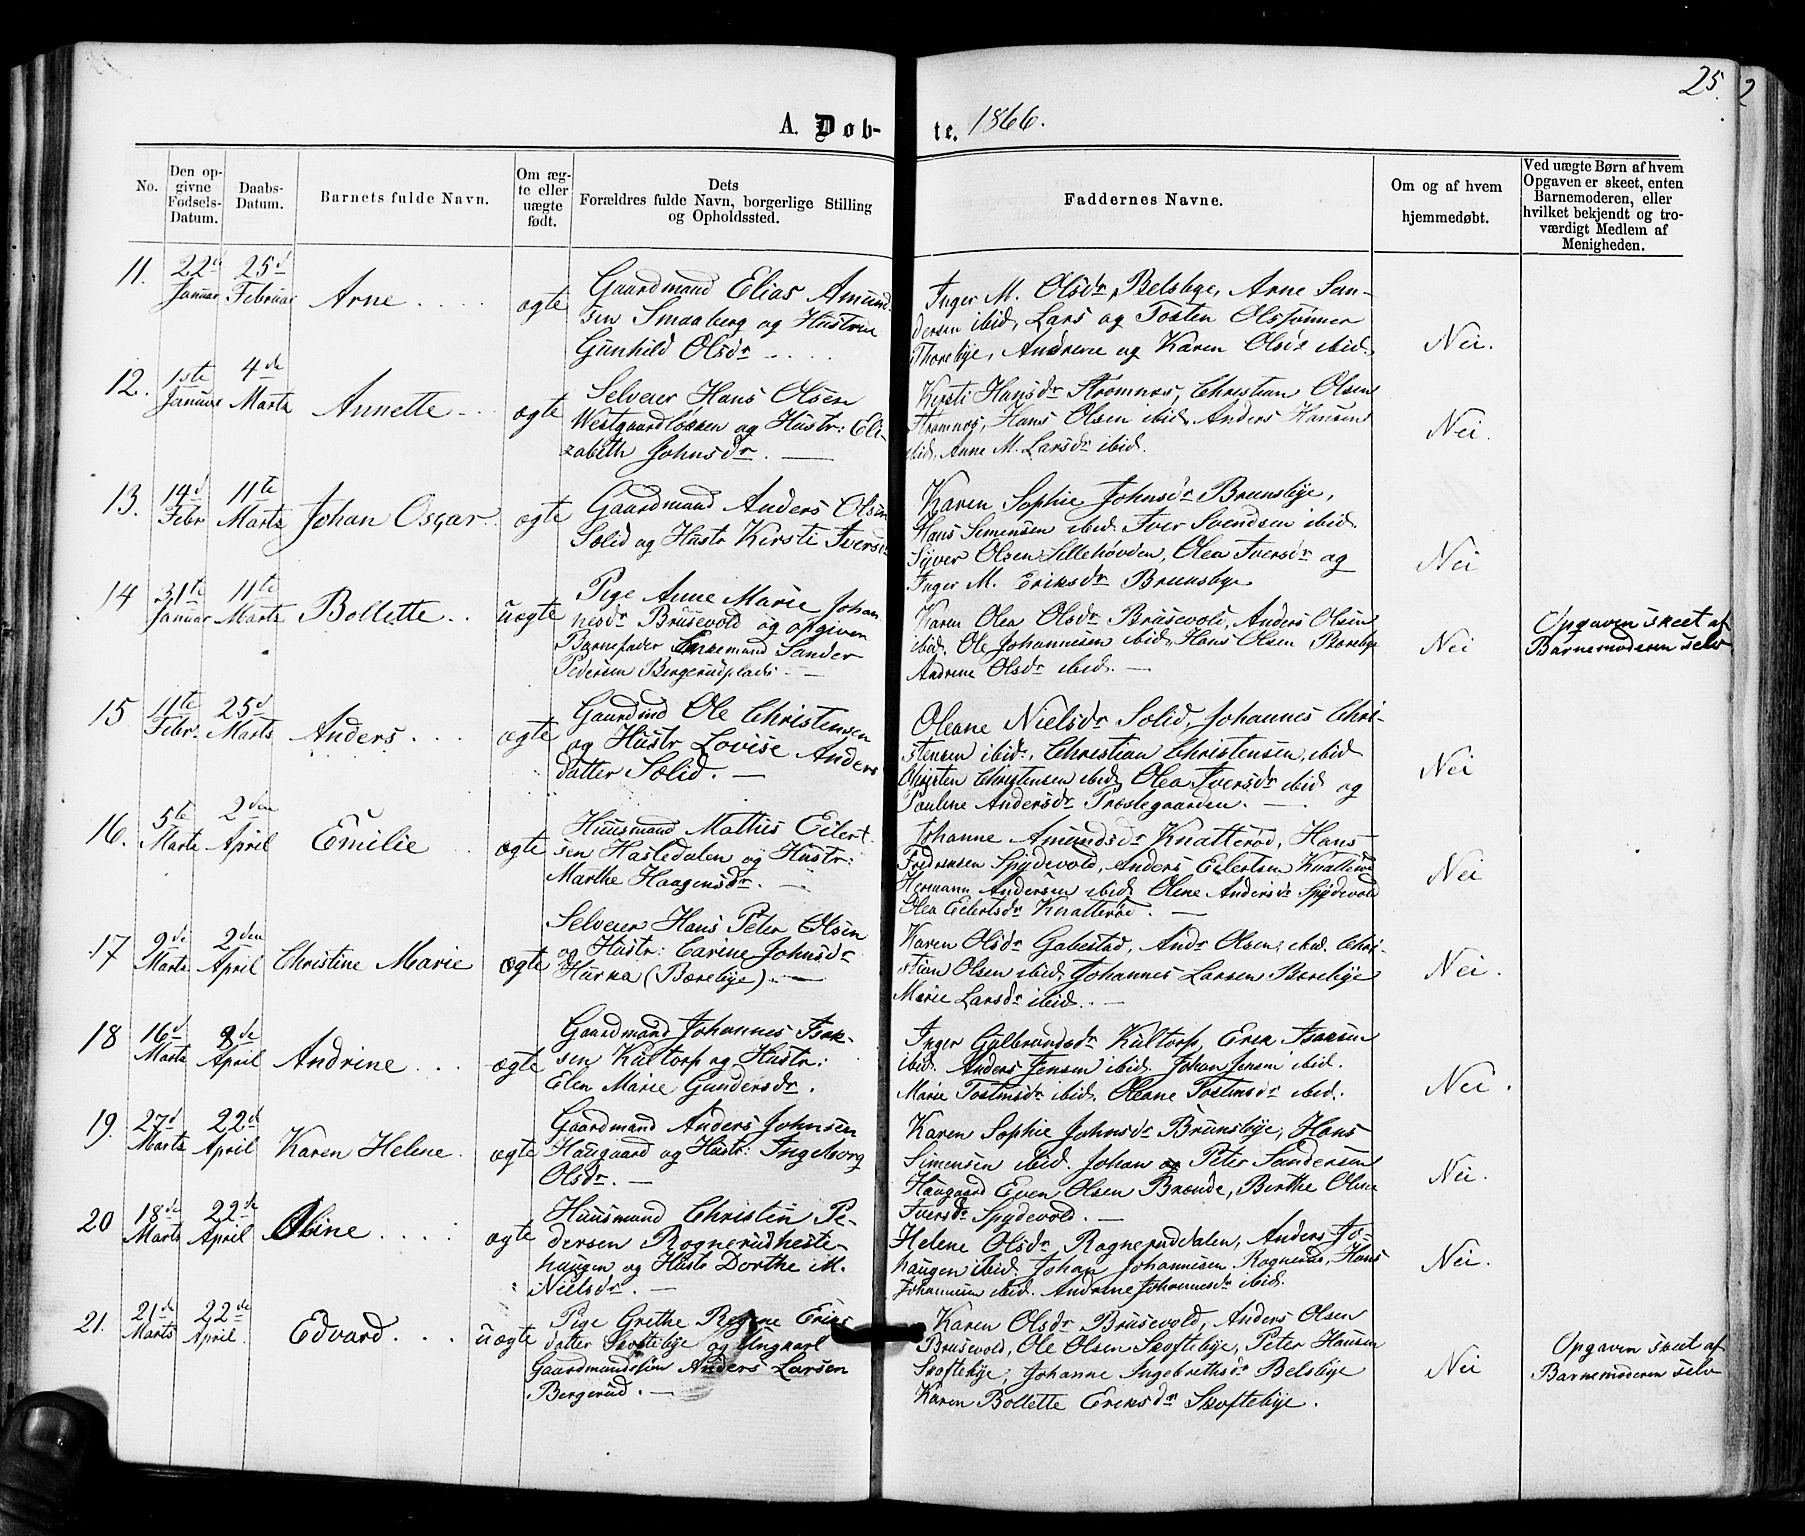 25. 2
A. Døb- te. 1866.
No.
Den op-
givne
Fødsels-
Datum.
Daabs-
Datum.
Barnets fulde Navn.
Om æg-
te eller
uægte
født.
Dets
Forældres fulde Navn, borgerlige Stilling
og Opholdssted.
Faddernes Navne.
Om og af hvem
hjemmedøbt.
Ved uægte Børn af hvem
Opgaven er skeet, enten
Barnemoderen, eller
hvilket bekjendt og tro-
værdigt Medlem af
Menigheden.
11. 22d Januar 25d Februar Arne ægte
Gaardmand Elias Amund-
sen Smaaberg og Hustrue
Gunhild Olsdr
Inger M. Olsdr Belsbye, Arne San-
dersen ibid, Lars og Tosten Olssønner
Thorebye, Andrene og Karen Olsdr ibid.
Nei.
12. 1ste Januar 4de Marts Annette ægte
Selveier Hans Olsen
Westgaardløkken og Hustr: Eli-
zabeth Johnsdr.
Kirsti Hansdr Stromnæs, Christian Olsen
Stromnæs, Hans Olsen ibid, Anders Hansen
ibid, Anne M. Larsdr ibid.
Nei.
13. 14d Febr 11te Marts Johan Oscar ægte
Gaardmand Anders Olsen
Solid og Hustr Kirsti Iversdr
Karen Sophie Johnsdr Brunsbye,
Hans Simensen ibid. Iver Svendsen ibid.
Syver Olsen Lillehovden, Olea Iversdr og
Inger M. Eriksdr Brunsbye
Nei
14 31te Januar 11te Marts Bollette uægte
Pige Anne Marie Johan
nesdr Brusevold og opgiven
Barnefader Enkemand Sander
Pedersen Bergerudplads.
Karen Olea Olsdr Brusevold, Anders Olsen
ibid. Ole Johannesen ibid, Hans Olsen Bærebye
Andrine Olsdr ibid.
Nei
Opgaven skeet af
Barnemoderen selv
15 11te Febr. 25d Marts Anders ægte
Gaardmd Ole Christensen
og Hustr Lovise Anders
datter Solid.
Oleane Nielsdr Solid, Johannes Chri-
stensen ibid, Christian Christensen, ibid
Christen Christensen ibid, Olea Iversdr ibid og
Pauline Andersdr Præstegaarden.
Nei
16. 5te Marts 2den April Emilie ægte
Huusmand Mathis Eilert
sen Hasledalen og Hustr:
Marthe Haagensdr.
Johanne Amundsdr Knatterød, Hans
Fredriksen Spydevold, Anders Eilertsen Knatterød
Hermann Andersen ibid, Olene Andersdr Spydevold
Olea Eilertsdr Knatterød.
Nei
17 9de Marts 2den April Christine Marie ægte
Selveier Hans Peter Olsen
og Hustr: Carine Johnsdr
Hurka (Bærebye).
Karen Olsdr Gabestad, Andr Olsen, ibid. Chri-
stian Olsen ibid, Johannes Larsen Bærebye
Marie Larsdr ibid.
Nei.
18 16d Marts 8de April Andrine ægte
Gaardmand Johannes Isak-
sen Kultorp og Hustr:
Elen Marie Gundersdr.
Inger Gulbrandsdr Kultorp, Erik Isaksen
ibid. Anders Jensen ibid. Johan Jensen ibid.
Marie Tostensdr ibid, Oleane Tostensdr ibid.
Nei.
19. 27d Marts 22d April Karen Helene ægte
Gaardmand Anders Johnsen
Haugaard og Hustr: Ingeborg
Olsdr.
Karen Sophie Johnsdr Brunsbye, Hans
Simensen ibid. Johan og Peter Sandersen
Haugaard Even Olsen Brænde, Berthe Oline
Iversdr Spydevold.
Nei.
20 18de Marts 22de April Oline ægte
Huusmand Christen Pe-
dersen Rognerudheste-
haugen og Hustr Dorthe M.
Nielsdr.
Helene Olsdr Rognerüddalen, Anders Jo-
haugen ibid Johan Johannesen Rognerud, Hans
Johannesen ibid. Andrine Johannesdr ibid.
Nei.
21. 21de Marts 22de April. Edvard. uægte
Pige Grethe Regine Eriks
datter Skoftebye og Ungkarl
Gaardmandssøn Anders Larsen
Bergerud.
Karen Olsdr Brusevold, Anders Olsen
Brusevold, Ole Olsen Skoftebye, Peter Hansen
Skoftebye, Johanne Ingebrethsdr Belsbye
Karen Bollette Eriksdr Skoftebye.
Nei
Opgaven skeet af
Barnemoderen selv